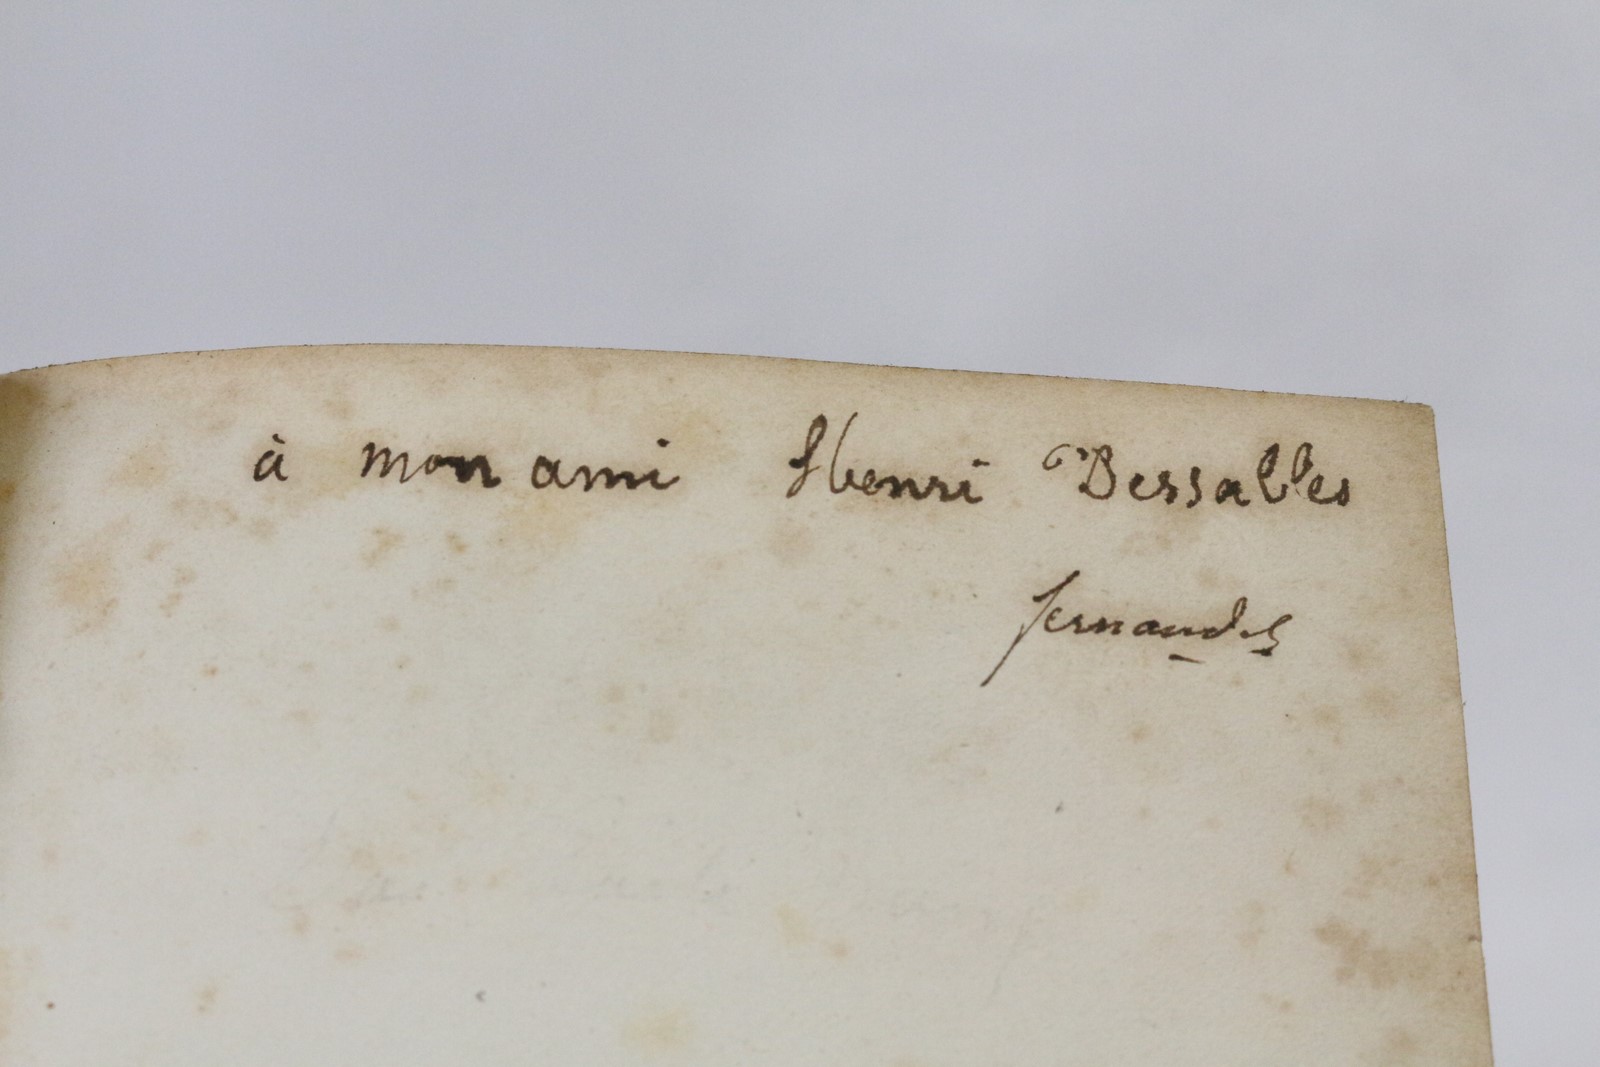 à mon ami Henri Dessalles
fernand